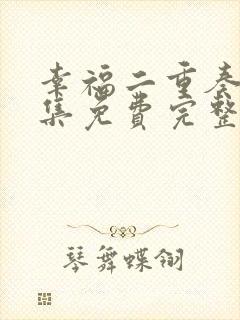 幸福二重奏
集免费完整
琴舞蝶翎